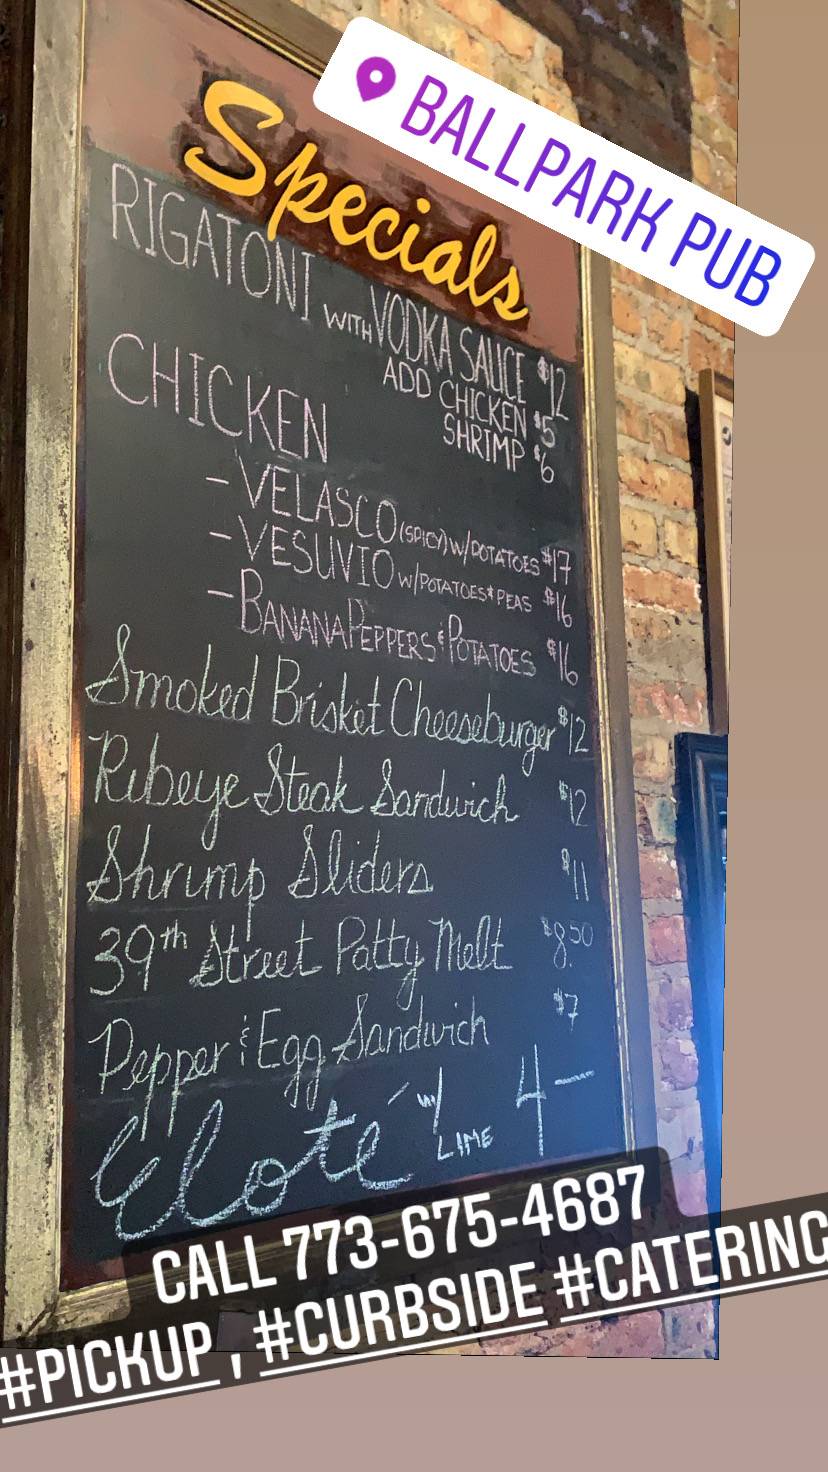 BALLPARK PUB
Specials
RIGATONI WITH VODKA SAUCE $12
ADD CHICKEN $5
SHRIMP $6
CHICKEN
- VELASCO (SPICY) W/POTATOES $17
- VESUVIO W/POTATOES & PEAS $16
- BANANA PEPPERS & POTATOES $16
Smoked Brisket Cheeseburger $12
Ribeye Steak Sandwich $12
Shrimp Sliders $11
39th Street Patty Melt $8.50
Pepper & Egg Sandwich $7
Eloté w/ LIME 4-
CALL 773-675-4687
#PICKUP, #CURBSIDE #CATERING